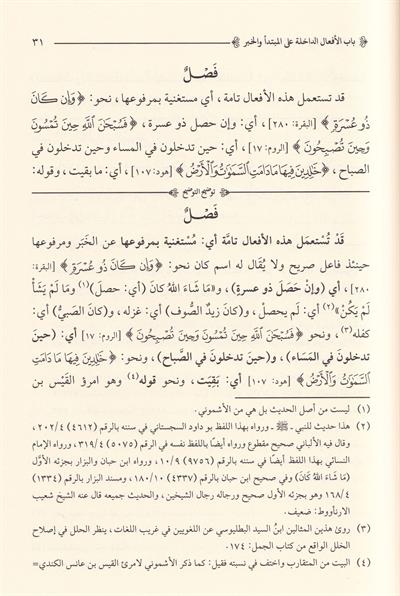 باب الأفعال الداخلة على المبتدأ والخبر ٣١
فَصْلٌ
قد تستعمل هذه الأفعال تامة، أي مستغنية بمرفوعها، نحو: ﴿وَإِن كَانَ
ذُو عُسْرَةٍ﴾ [البقرة: ٢٨٠]، أي: وإن حصل ذو عسرة، ﴿فَسُبْحَٰنَ ٱللَّهِ حِينَ تُمْسُونَ
وَحِينَ تُصْبِحُونَ﴾ [الروم: ١٧]، أي: حين تدخلون في المساء وحين تدخلون في
الصباح، ﴿خَٰلِدِينَ فِيهَا مَا دَامَتِ ٱلسَّمَٰوَٰتُ وَٱلْأَرْضُ﴾ [هود: ١٠٧]، أي: ما بقيت، وقوله:
توضيح التوضيح
فَصْلٌ
قَدْ تُسْتعمَل هذه الأفعال تامَّة أي: مُسْتغنية بمَرفوعها عن الخَبَر ومرفوعها
حينئذ فاعل صريح ولا يُقَال له اسم كان نحو: ﴿وَإِن كَانَ ذُو عُسْرَةٍ﴾ [البقرة:
٢٨٠]، أي (وإِنْ حَصَلَ ذو عسرةٍ)، و«مَا شَاءَ اللهُ كانَ (أي: حصل)(١) وما لَمْ يَشَأْ
لَمْ يَكُنْ»(٢) أي: لم يحصلْ، و(كانَ زيدٌ الصُّوف) أي: غزله، و(كانَ الصَبيَّ) أي:
كفله(٣)، ونحو ﴿فَسُبْحَٰنَ ٱللَّهِ حِينَ تُمْسُونَ وَحِينَ تُصْبِحُونَ﴾ [الروم: ١٧] أي: (حين
تدخلونَ في المَسَاء)، و(حينَ تدخلونَ في الصَّباح)، ونحو: ﴿خَٰلِدِينَ فِيهَا مَا دَامَتِ
ٱلسَّمَٰوَٰتُ وَٱلْأَرْضُ﴾ [هود: ١٠٧] أي: بَقِيَت، ونحو قوله(٤) وهو امرؤ القَيْس بن
(١) ليست من أصل الحديث بل هي من الأشموني.
(٢) هذا حديث للنبي ﷺ - ورواه بهذا اللفظ بو داود السجستاني في سننه بالرقم (٤٦١٢) ٢٠٢/٤،
وقال فيه الألباني صحيح مقطوع ورواه أيضًا باللفظ نفسه في الرقم (٥٠٧٥) ٣١٩/٤، ورواه الإمام
النسائي بهذا اللفظ أيضًا في سننه بالرقم (٩٧٥٦) ١٠/٩، ورواه ابن حبان والبزار بجزئه الأوَّل
(مَا شَاءَ اللهُ كَانَ) وفي صحيح ابن حبان بالرقم (٤٣٣٧) ١٨٠/١٠، ومسند البزار بالرقم (١٣٣٤)
١٦٨/٤ وهو بجزئه الأول صحيح ورجاله رجال الشيخين، والحديث جميعه قال عنه الشيخ شعيب
الارناؤوط: ضعيف.
(٣) روىٰ هذين المثالين ابنُ السيد البطليوسي عن اللغويين في غريب اللغات، ينظر الحلل في إصلاح
الخلل الواقع من كتاب الجمل: ١٧٤.
(٤) البيت من المتقارب واختف في نسبته فقيل: كما ذكر الأشموني لامرئ القيس بن عانس الكندي=